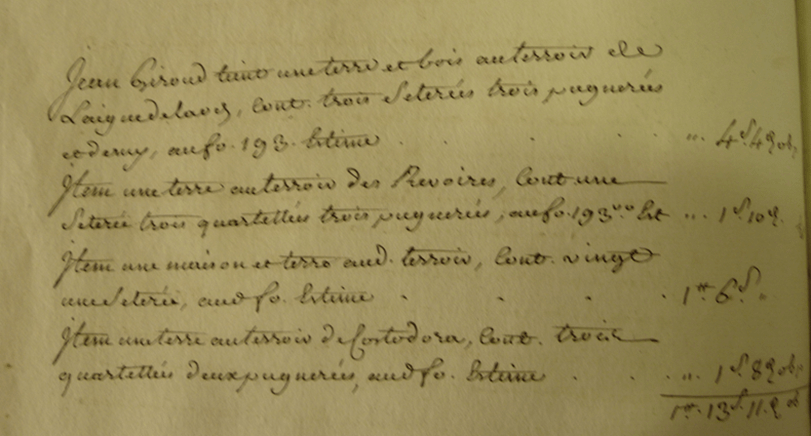 Jean Giroud tient une terre et bois au terroir de
Laiguedelaved, Cont. trois Seterées trois pugnerées
et demy, au fo. 193. Estime . . . . ,,. 4s. 4d ob,
Item une terre au terroir des Revoires, Cont une
Seterée trois quartellées trois pugnerées, au fo. 193 vo. Est ,,. 1s. 10d.
Item une maison et terre aud. terroir, Cont. vingt
une Seterée, aud fo. Estime . . . . 1tt 6s. ,,
Item une terre au terroir de Costodora, Cont. trois
quartellées deux pugnerées, aud fo. Estime . . . ,,. 1s. 8d ob,,
1tt. 13s. 11.d ob